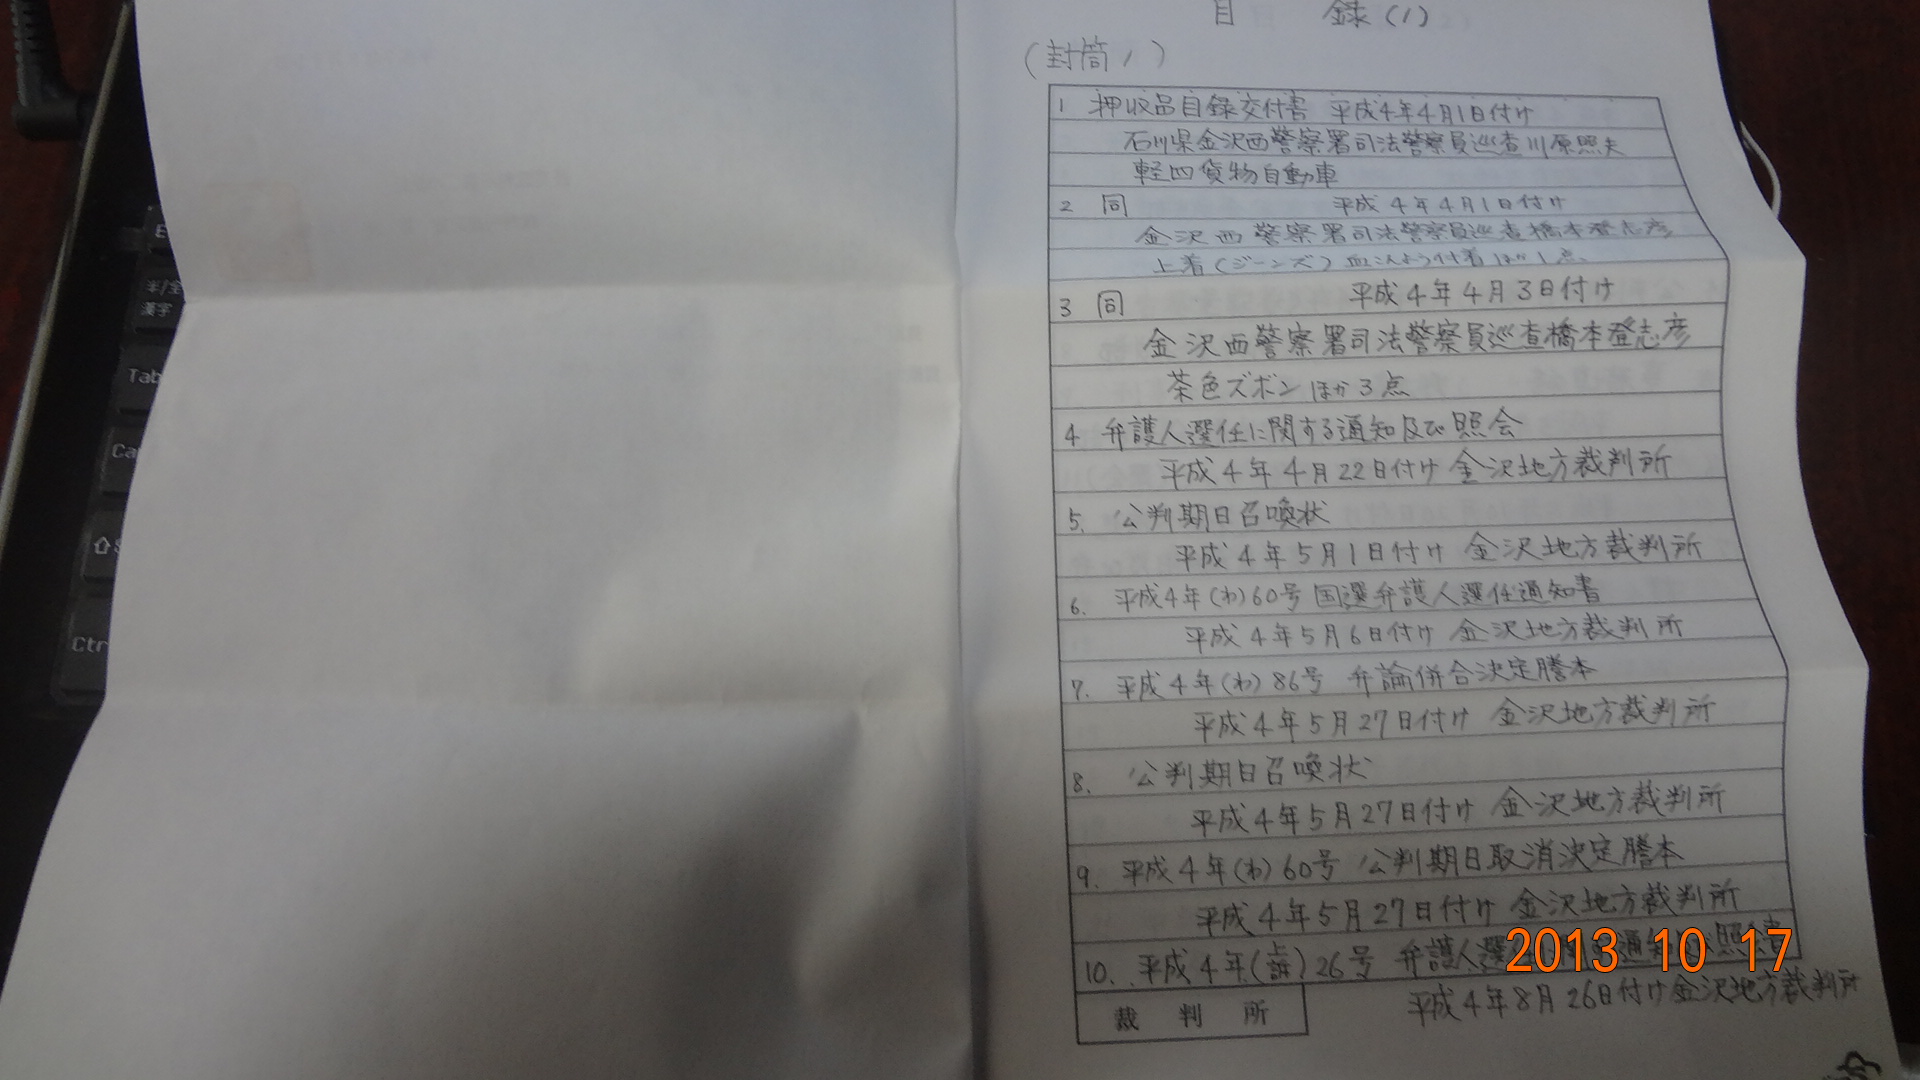 目 録(1)
(封筒1)
1 押収品目録交付書 平成4年4月1日付け
石川県金沢西警察署司法警察員巡査川原照夫
軽四貨物自動車
2 同 平成4年4月1日付け
金沢西警察署司法警察員巡査橋本登志彦
上着(ジーンズ)血こんよう付着ほか1点
3 同 平成4年4月3日付け
金沢西警察署司法警察員巡査橋本登志彦
茶色ズボンほか3点
4 弁護人選任に関する通知及び照会
平成4年4月22日付け 金沢地方裁判所
5. 公判期日召喚状
平成4年5月1日付け 金沢地方裁判所
6. 平成4年(わ)60号 国選弁護人選任通知書
平成4年5月6日付け 金沢地方裁判所
7. 平成4年(わ)86号 弁論併合決定謄本
平成4年5月27日付け 金沢地方裁判所
8. 公判期日召喚状
平成4年5月27日付け 金沢地方裁判所
9. 平成4年(わ)60号 公判期日取消決定謄本
平成4年5月27日付け 金沢地方裁判所
10. 平成4年(上訴)26号 弁護人選 通 照会書
平成4年8月26日付け金沢地方裁判所
裁 判 所
2013 10 17
半/全
漢字
Tab
Ca
Ctr